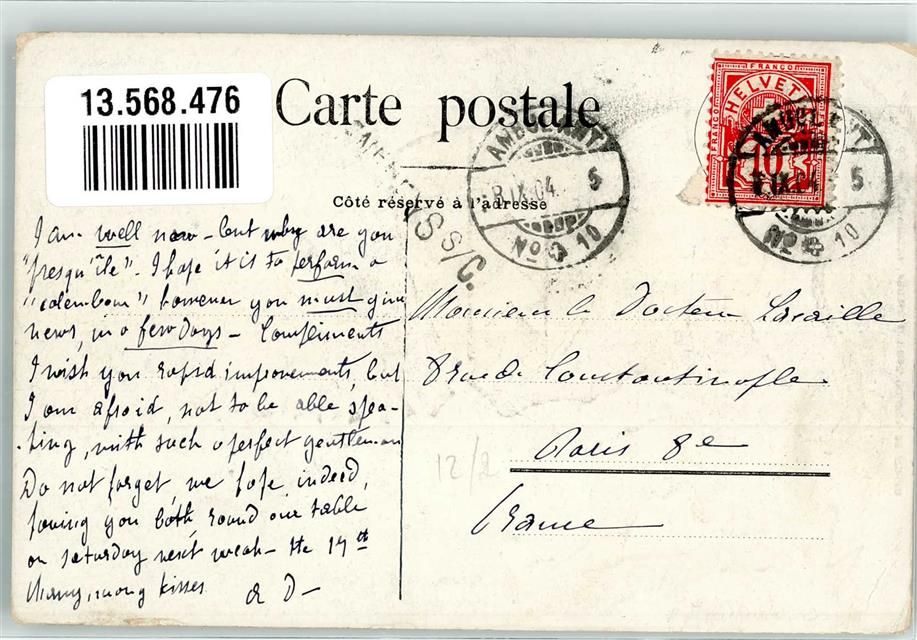 13.568.476
Carte postale
Côté réservé à l'adresse
FRANCO
HELVETIA
FRANCO
10
AMBULANT
8.IX.04
5
No 10
AMBULANT
IX.04
5
No 10
S/C.
I am well now – but why are you
"presqu'île". I hope it is to perform a
"calembour" however you must give
news, in a few days – Compliments
I wish you rapid improvements, but
I am afraid, not to be able spea-
-king, with such a perfect gentleman
Do not forget, we hope, indeed,
having you both round our table
on saturday next weak – the 17th
Many, many kisses
D –
Monsieur le Docteur Lacaille
8 rue de Constantinople
Paris 8e
France
12/2